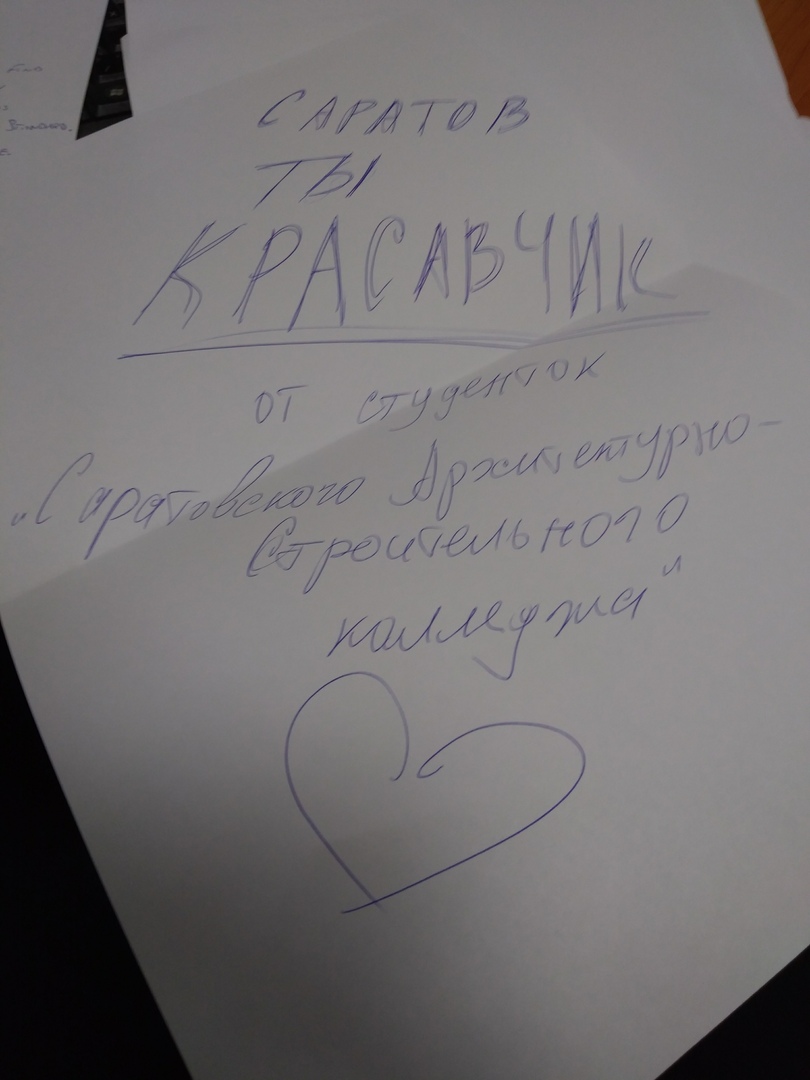 САРАТОВ
ТЫ
КРАСАВЧИК
от студенток
"Саратовского Архитетурно-
Строительного
колледжа"